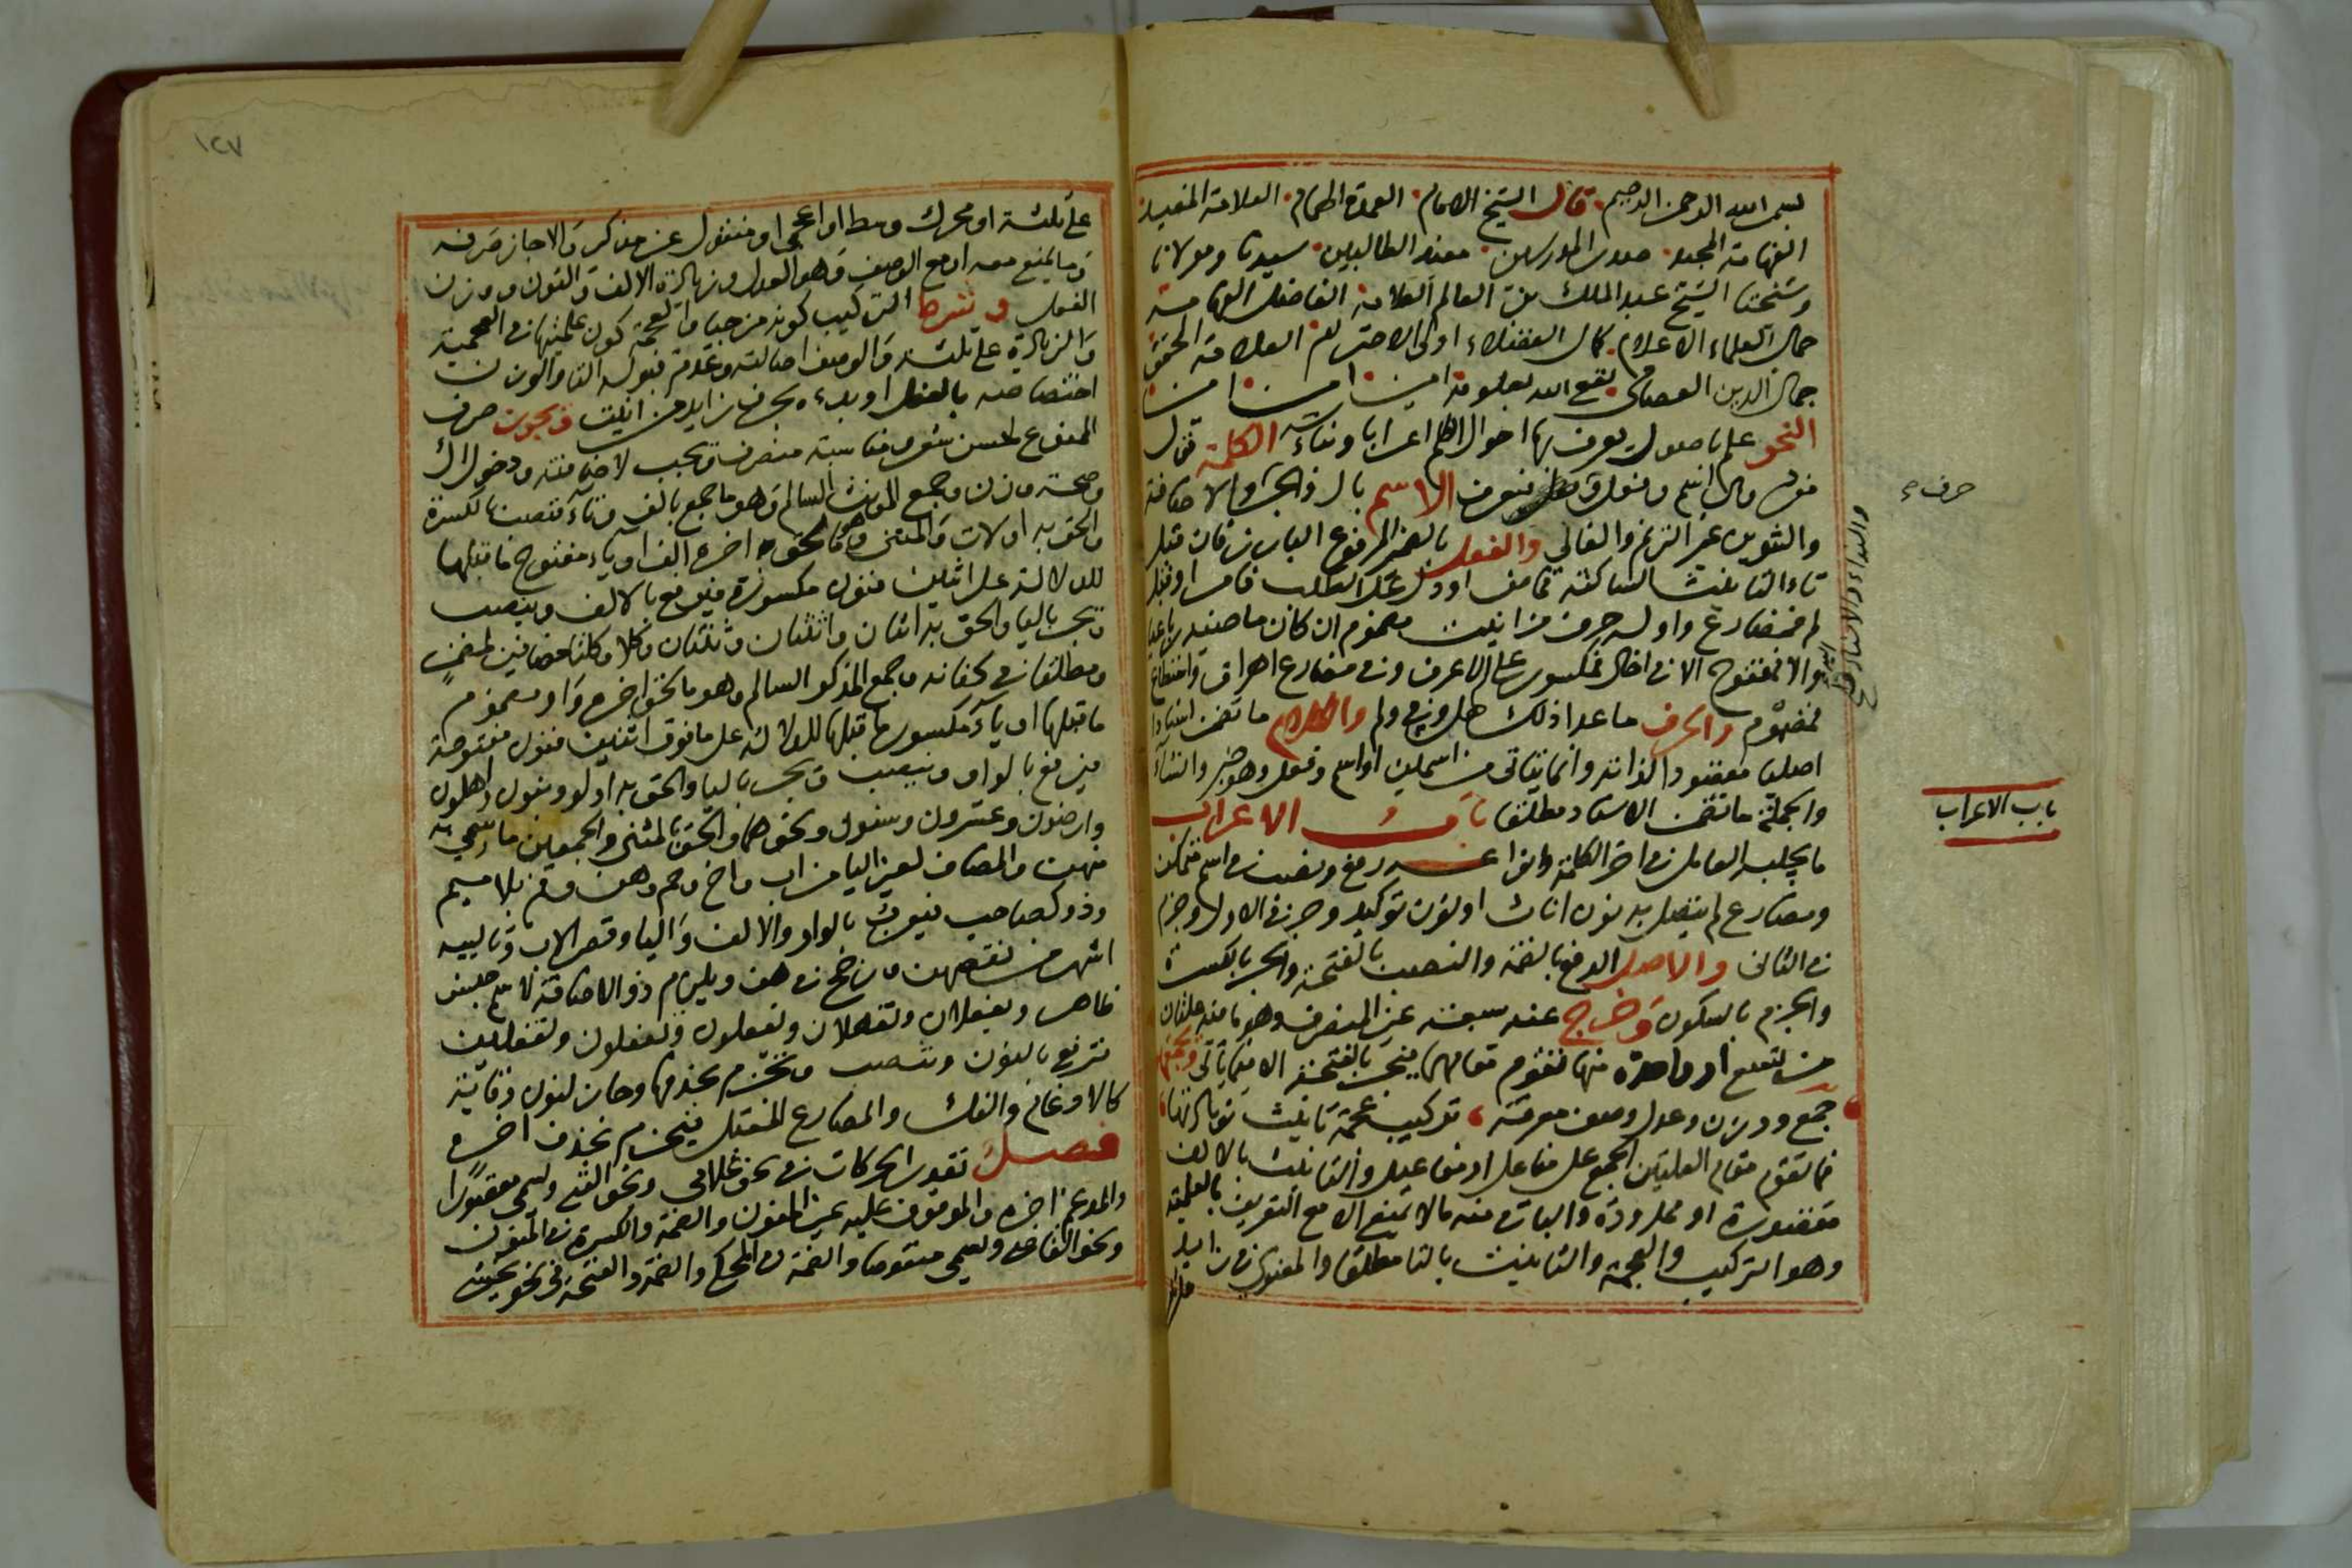 بسم الله الرحمن الرحيم قال الشيخ الامام العمدة الهمام العلامة المفيد
الفهامة المجيد صدر المدرسين مفيد الطالبين سيدنا ومولانا
وشيخنا الشيخ عبد الملك بن العالم العلامة الفاضل الفهامة
جمال العلماء الاعلام كمال الفضلاء اولى الاحترام العلامة المحقق
جمال الدين العصامي نفع الله بعلومه امين امين امين
النحو علم باصول يعرف بها احوال الكلم اعرابا وبناء الكلمة قول
مفرد وهي اسم وفعل وحرف فيعرف الاسم بال والجر والاضافة
والتنوين غير الترنم والغالي والفعل بالضمير المرفوع البارز فان قبل
تاء التانيث الساكنة فماض او دل على الطلب فامر او قبل
لم فمضارع واوله حرف من انيت مضموم ان كان ماضيه رباعيا
والا فمفتوح الا في اخال فمكسور على الاعرف وفي مضارع اهراق واسطاع
فمضموم والحرف ما عدا ذلك هل وفي ولم والكلام ما تضمن اسنادا
اصليا مقصودا لذاته وانما يتاتى من اسمين او اسم وفعل وهو خبر وانشاء
والجملة ما تضمن الاسناد مطلقا باب الاعراب
ما يجلبه العامل في اخر الكلمة وانواعه رفع ونصب في اسم متمكن
ومضارع لم يتصل به نون اناث او نون توكيد وجر في الاول وجزم
في الثاني والاصل الرفع بالضمة والنصب بالفتحة والجر بالكسرة
والجزم بالسكون وخرج عنه سبعة غير المنصرف وهو ما فيه علتان
من تسع او واحدة منها تقوم مقامهما فيجر بالفتحة الا فيما ياتي ويجمعها
جمع ووزن وعدل وصف معرفة تركيب عجمة تانيث زيادتها
فما تقوم مقام العلتين الجمع على مفاعل او مفاعيل والتانيث بالالف
مقصورة او ممدودة والباقي منه ما لا يمنع الا مع التعريف بالعلمية
وهو التركيب والعجمة والتانيث بالتا مطلقا والمعنوي في زايد
حرف
باب الاعراب
١٢٧
على ثلثة او محرك وسط او اعجمي او منقول عن مذكر والا جاز صرفه
وما يمنع معه او مع الوصف وهو العدل وزيادة الالف والنون ووزن
الفعل وشرط التركيب كونه مزجيا والعجمة كون علميتها في العجمية
والزيادة على ثلثة والوصف اصالته وعدم قبوله التا والوزن
اختصاصه بالفعل او بدءه بحرف زايد من انيت ويجوز صرف
الممنوع لحسن نحو مناسبة منصرف ويجب لاضافته ودخول ال
وصحة وزن وجمع المونث السالم وهو ما جمع بالف وتاء فتنصب بالكسرة
والحق به اولات والمثنى وهو ما لحق اخره الف او ياء مفتوح ما قبلها
للدلالة على اثنين فنون مكسورة فيرفع بالالف وينصب
ويجر باليا والحق به اثنان واثنتان وثنتان وكلا وكلتا مضافين لمضمر
ومطلقا في كنانة وجمع المذكر السالم وهو ما لحق اخره واو مضموم
ما قبلها او ياء مكسور ما قبلها للدلالة على ما فوق اثنين فنون مفتوحة
فيرفع بالواو وينصب ويجر باليا والحق به اولو وبنون واهلون
وارضون وعشرون وسنون ونحوهما والحق بالمثنى والجمعين ما سمي به
منهن والمضاف لغير اليا من اب واخ وحم وهن وفم بلا ميم
وذو كصاحب فيعرب بالواو والالف واليا وقصر الاب وتالييه
اشهر من نقصهن ورجح في هن ويلزم ذو الاضافة لاسم جنس
ظاهر ويفعلان وتفعلان ويفعلون وتفعلون وتفعلين
ترفع بالنون وتنصب وتجزم بحذفها وجاز لنون وقاية
كالادغام والفك والمضارع المعتل فيجزم بحذف اخره
فصل تقدر الحركات في نحو غلامي ونحو الفتى ويسمى مقصورا
والمدغم اخره والموقوف عليه غير المنون والضمة والكسرة في المنون
ونحو القاضي ويسمى منقوصا والضمة في المحكي والضمة والفتحة في نحو يخشى